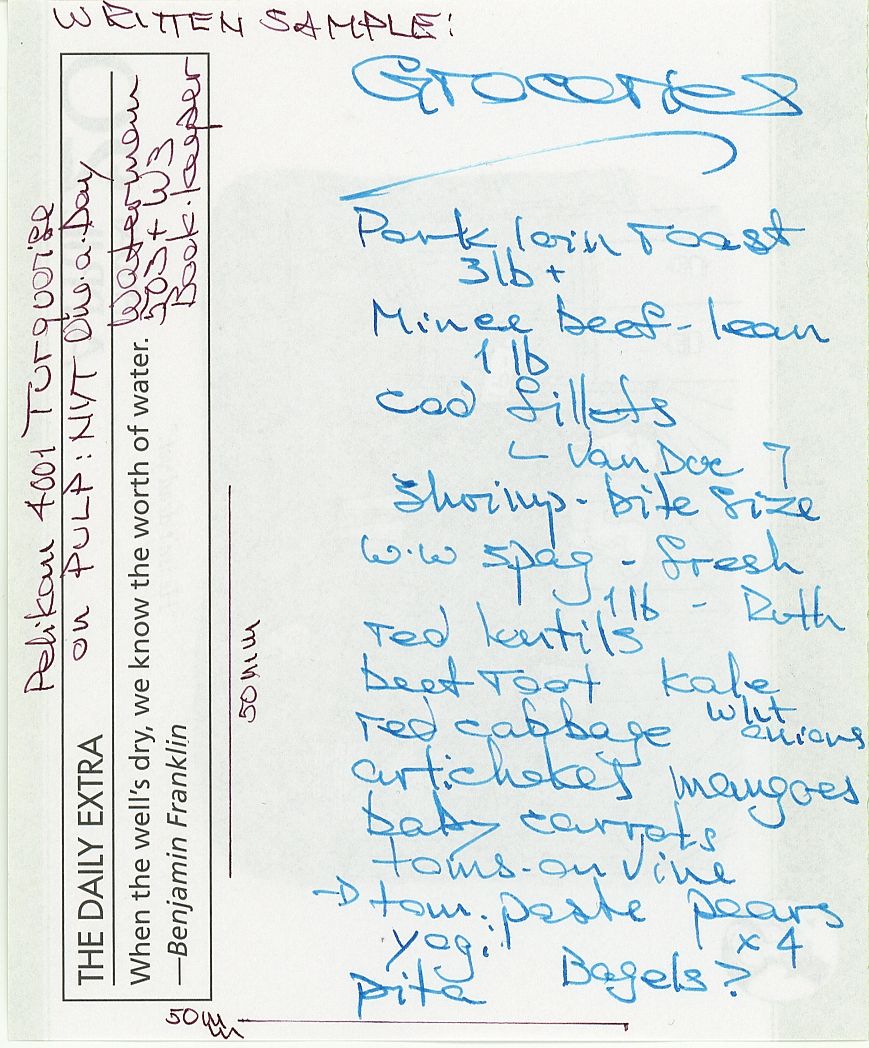 WRITTEN SAMPLE:
Groceries
Pork loin roast
3lb +
Mince beef - lean
1 lb
cod fillets
Shrimp - bite size
W.W spag - fresh
1lb - Ruth
red lentils
beet root kale
red cabbage wht onions
artichokes mangoes
baby carrots
toms-on vine
→ tom. paste pears
yog: x 4
pita Bagels?
Pelikan 4001 Turquoise
on PULP: NVT Ow.a.Day
Waterman
503 + W3
Book.keeper
THE DAILY EXTRA
When the well's dry, we know the worth of water.
—Benjamin Franklin
50mm
50mm